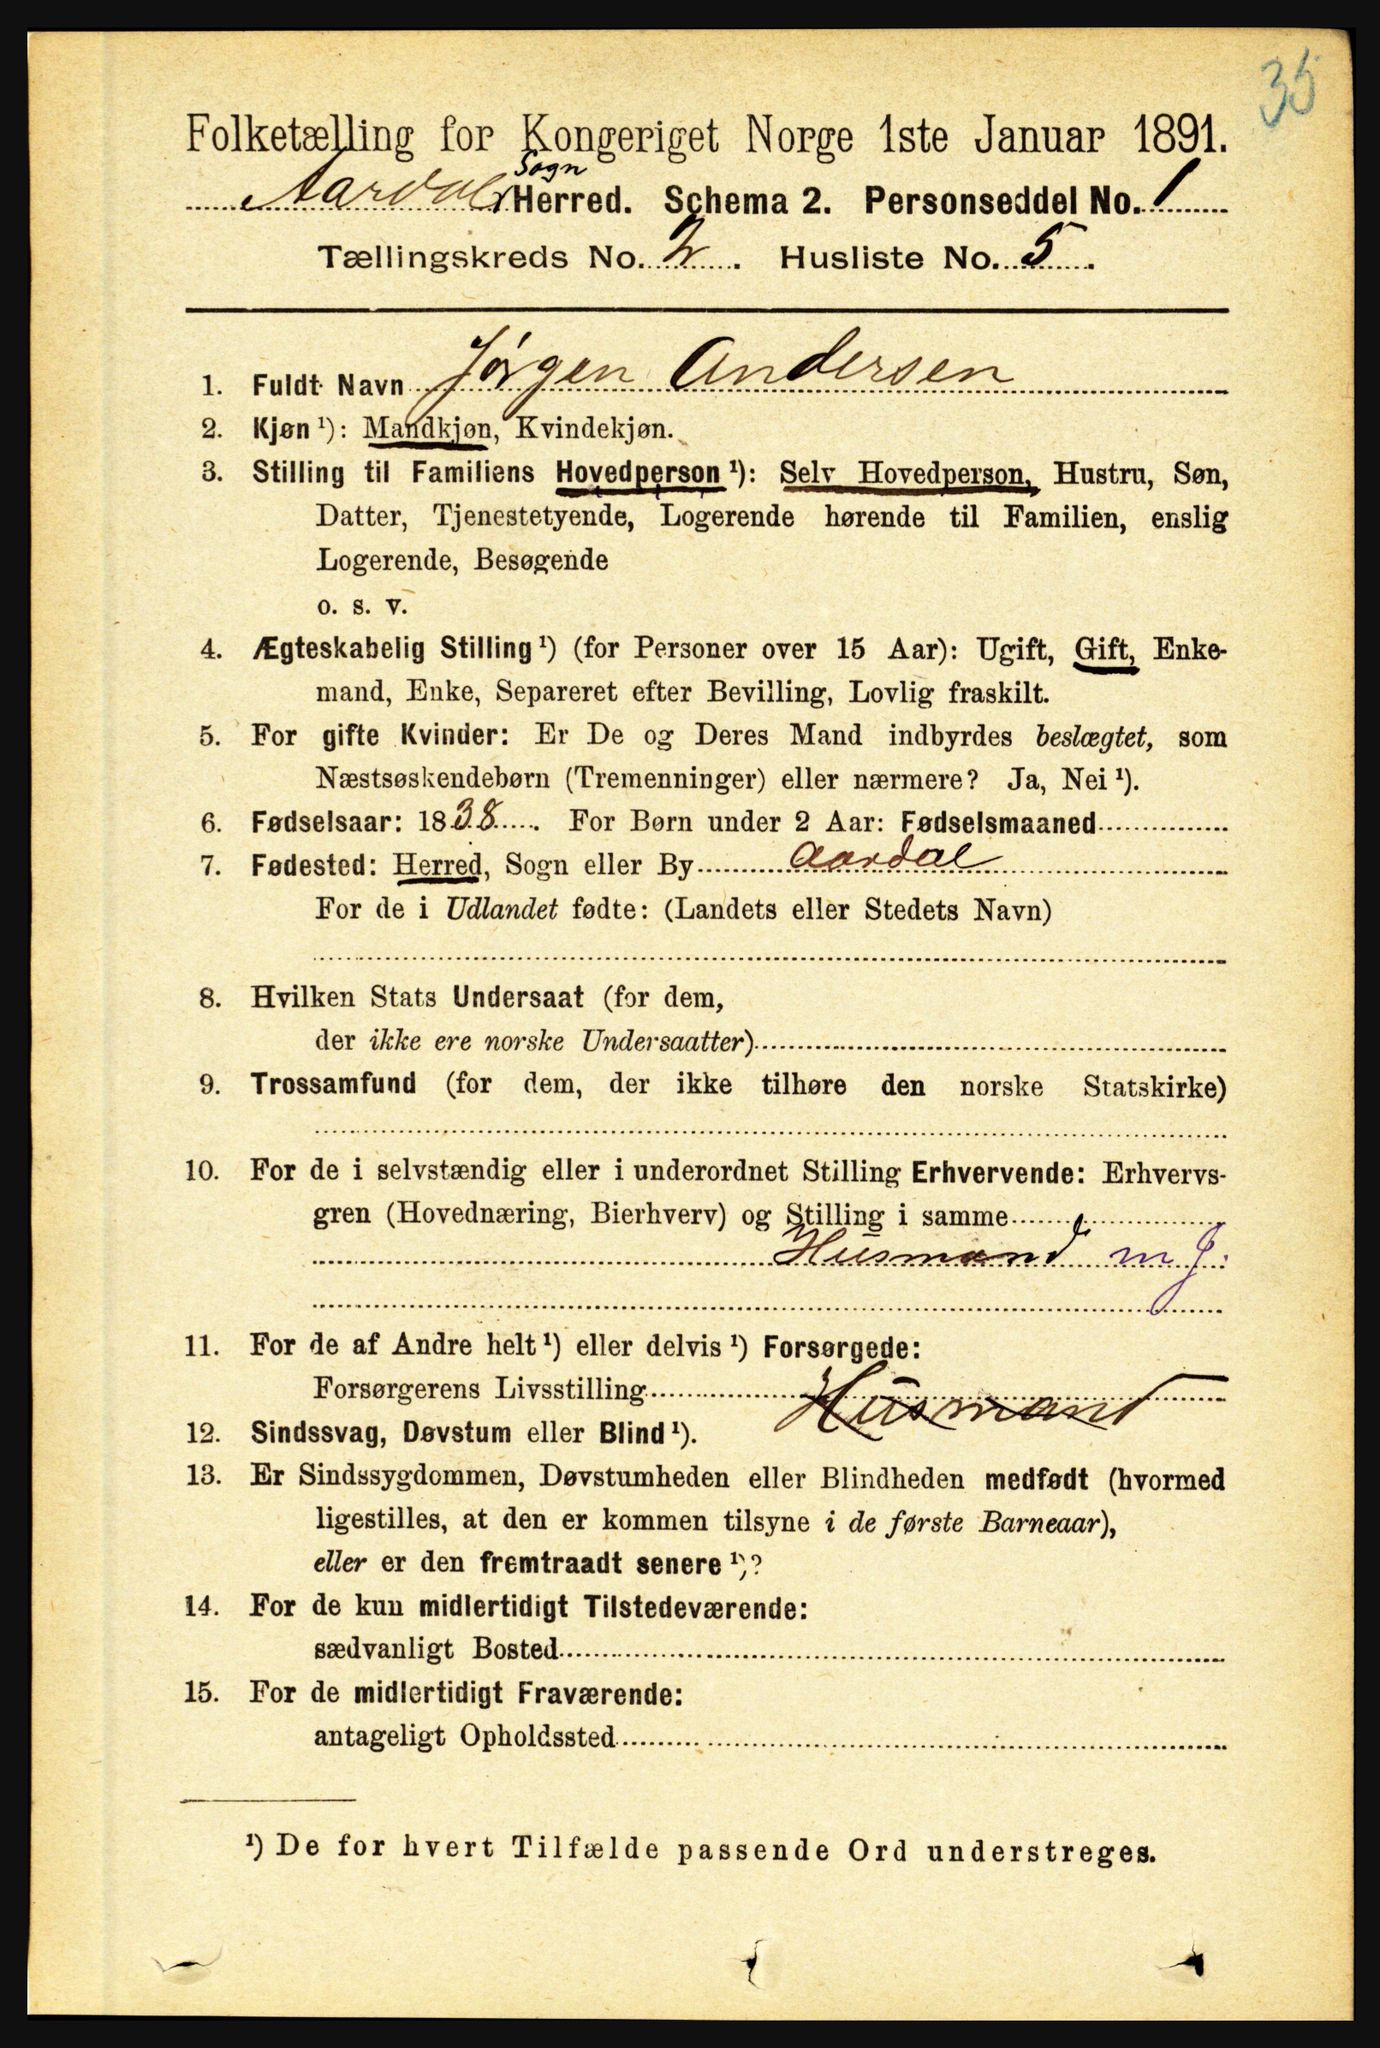 35
Folketælling for Kongeriget Norge 1ste Januar 1891.
Sogn
Aardal Herred. Schema 2. Personseddel No. 1
Tællingskreds No. 2. Husliste No. 5.
1. Fuldt Navn Jørgen Andersen
2. Kjøn ¹): Mandkjøn, Kvindekjøn.
3. Stilling til Familiens Hovedperson ¹): Selv Hovedperson, Hustru, Søn,
Datter, Tjenestetyende, Logerende hørende til Familien, enslig
Logerende, Besøgende
o. s. v.
4. Ægteskabelig Stilling ¹) (for Personer over 15 Aar): Ugift, Gift, Enke-
mand, Enke, Separeret efter Bevilling, Lovlig fraskilt.
5. For gifte Kvinder: Er De og Deres Mand indbyrdes beslægtet, som
Næstsøskendebørn (Tremenninger) eller nærmere? Ja, Nei ¹).
6. Fødselsaar: 1838. For Børn under 2 Aar: Fødselsmaaned
7. Fødested: Herred, Sogn eller By Aardal
For de i Udlandet fødte: (Landets eller Stedets Navn)
8. Hvilken Stats Undersaat (for dem,
der ikke ere norske Undersaatter)
9. Trossamfund (for dem, der ikke tilhøre den norske Statskirke)
10. For de i selvstændig eller i underordnet Stilling Erhvervende: Erhvervs-
gren (Hovednæring, Bierhverv) og Stilling i samme
Husmand m J.
11. For de af Andre helt ¹) eller delvis ¹) Forsørgede:
Forsørgerens Livsstilling Husmand
12. Sindssvag, Døvstum eller Blind ¹).
13. Er Sindssygdommen, Døvstumheden eller Blindheden medfødt (hvormed
ligestilles, at den er kommen tilsyne i de første Barneaar),
eller er den fremtraadt senere ¹)?
14. For de kun midlertidigt Tilstedeværende:
sædvanligt Bosted
15. For de midlertidigt Fraværende:
antageligt Opholdssted
¹) De for hvert Tilfælde passende Ord understreges.